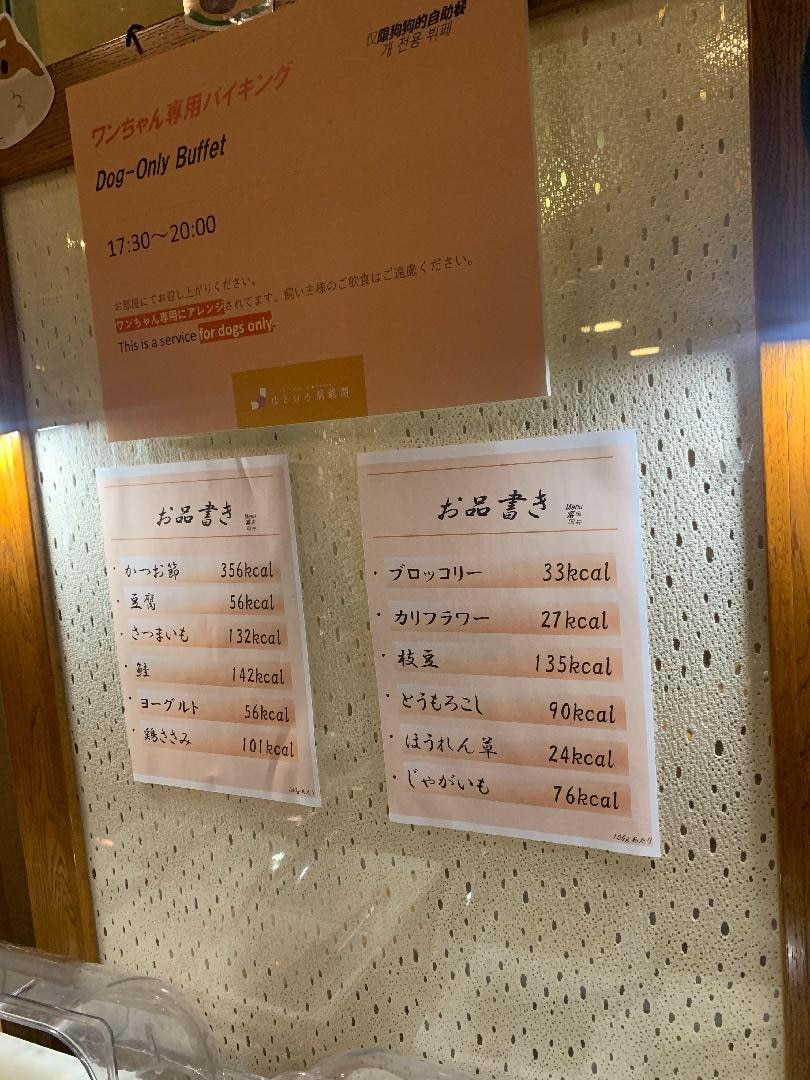 仅限狗狗的自助餐
개 전용 뷔페
ワンちゃん専用バイキング
Dog-Only Buffet
17:30～20:00
お部屋にてお召し上がりください。
ワンちゃん専用にアレンジされてます。飼い主様のご飲食はご遠慮ください。
This is a service for dogs only.
お品書き
Menu
かつお節 356kcal
豆腐 56kcal
さつまいも 132kcal
鮭 142kcal
ヨーグルト 56kcal
鶏ささみ 101kcal
100gあたり
お品書き
Menu
ブロッコリー 33kcal
カリフラワー 27kcal
枝豆 135kcal
とうもろこし 90kcal
ほうれん草 24kcal
じゃがいも 76kcal
100gあたり